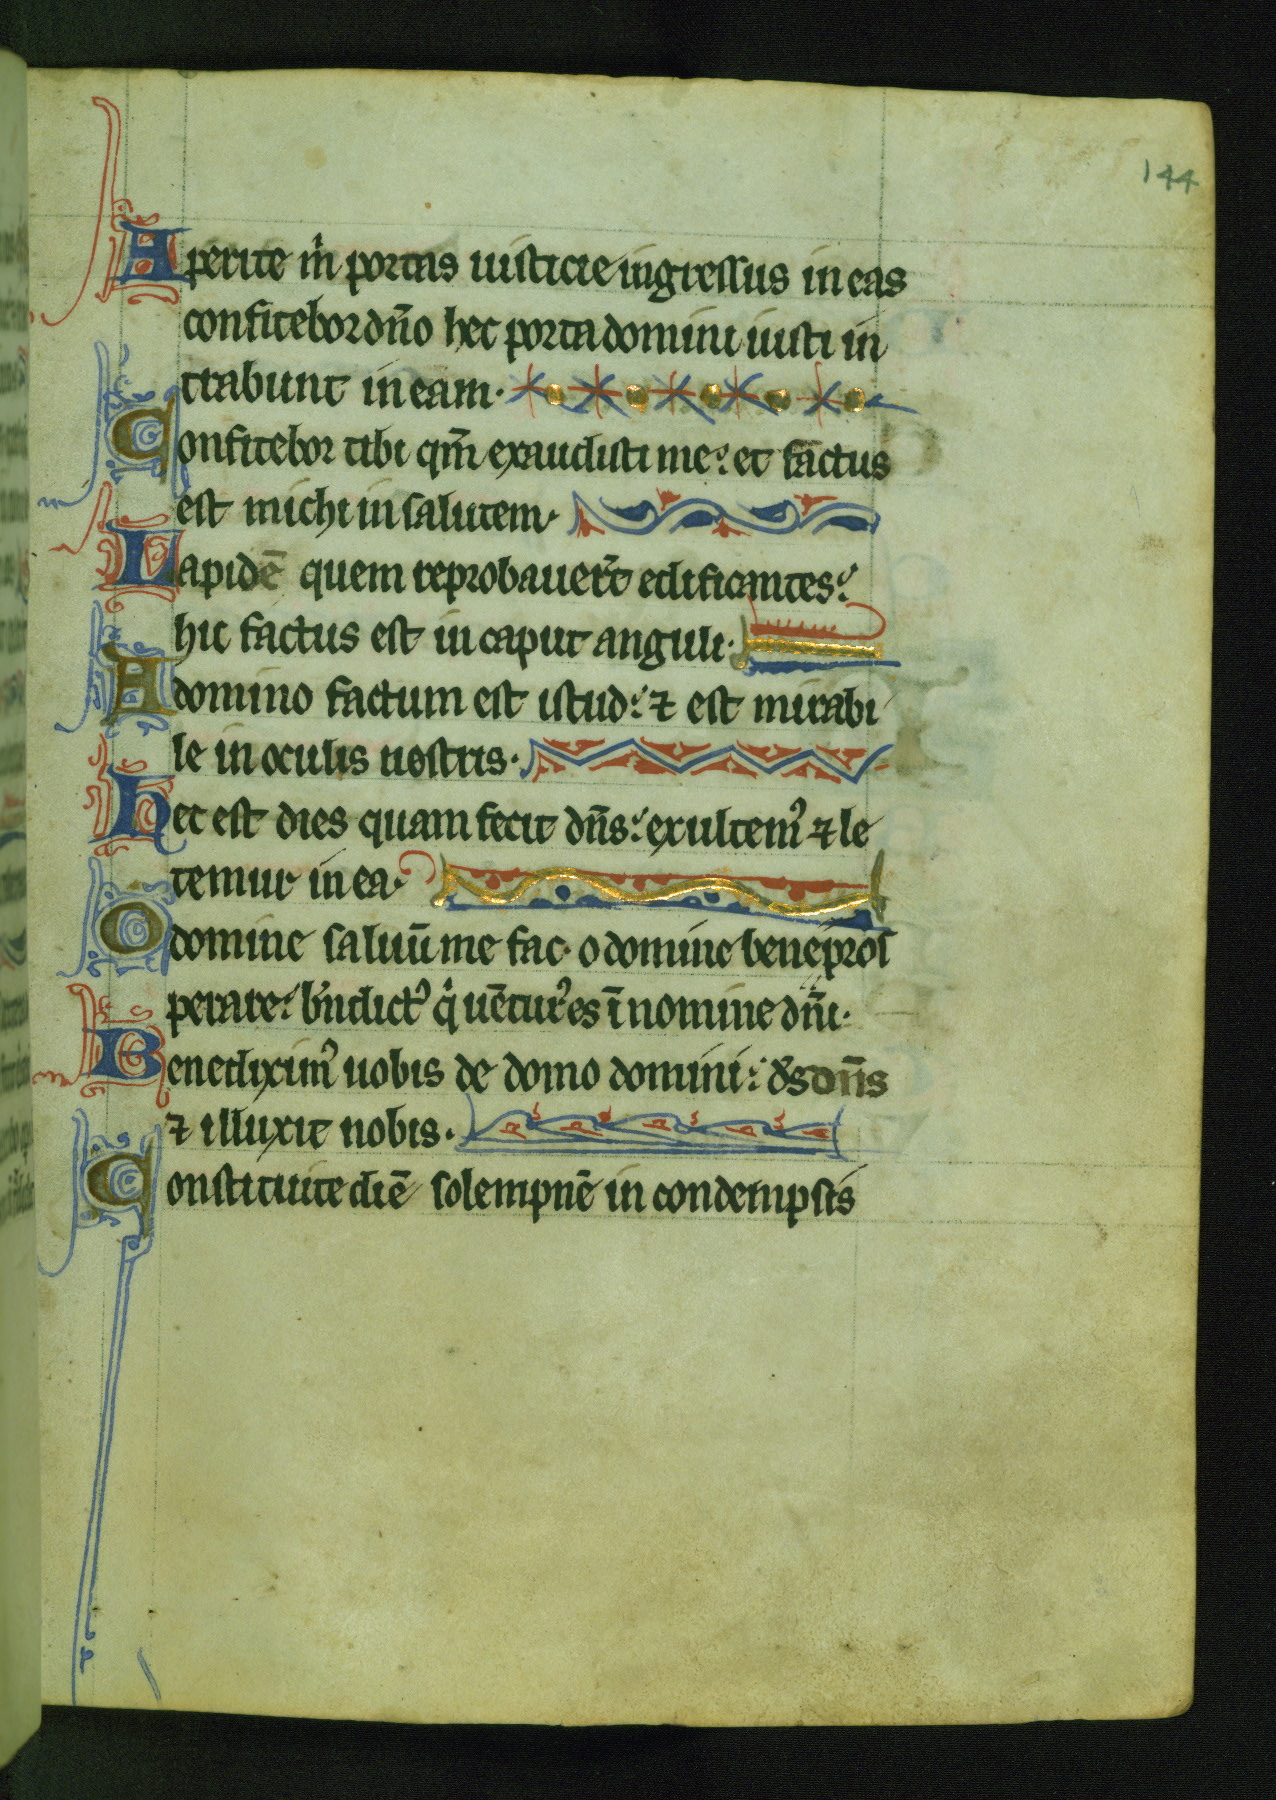 144
Aperite m̍ portas iusticie ingressus in eas
confitebor dn̄o hec porta domini iusti in
trabunt in eam·
Confitebor tibi qm̄ exaudisti me: et factus
est michi in salutem·
Lapidē quem reprobauer̄t edificantes:
hic factus est in caput anguli·
A domino factum est istud: ⁊ est mirabi
le in oculis nostris·
Hec est dies quam fecit dn̄s: exultem᷒ ⁊ le
temur in ea·
O domine saluū me fac· o domine bene pros
perare: bn̄dict᷒ q̍ uētur᷒ es ī nomine dn̄i·
Benedixim᷒ uobis de domo domini: ds̄ dn̄s
⁊ illuxit nobis·
Constituite diē solempnē in condempsis